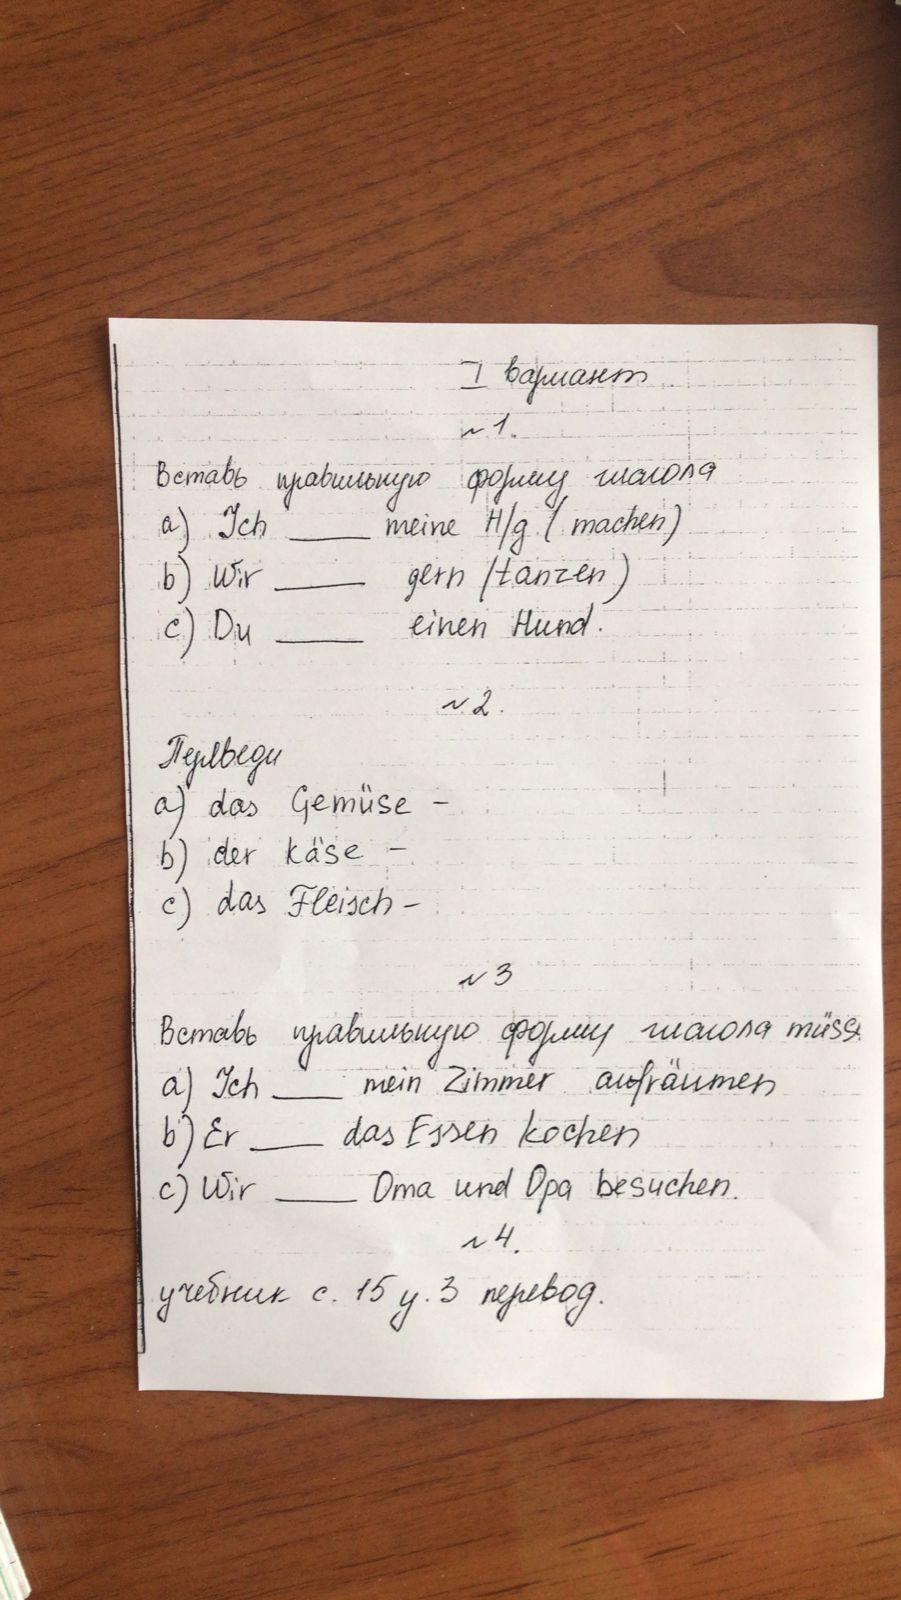 I вариант
№1.
Вставь правильную форму глагола
a) Ich ____ meine H/g (machen)
b) Wir ____ gern (tanzen)
c) Du ____ einen Hund.
№2.
Переведи
a) das Gemüse -
b) der Käse -
c) das Fleisch -
№3
Вставь правильную форму глагола müsse
a) Ich ____ mein Zimmer aufräumen
b) Er ____ das Essen kochen
c) Wir ____ Oma und Opa besuchen.
№4.
учебник с. 15 у. 3 перевод.